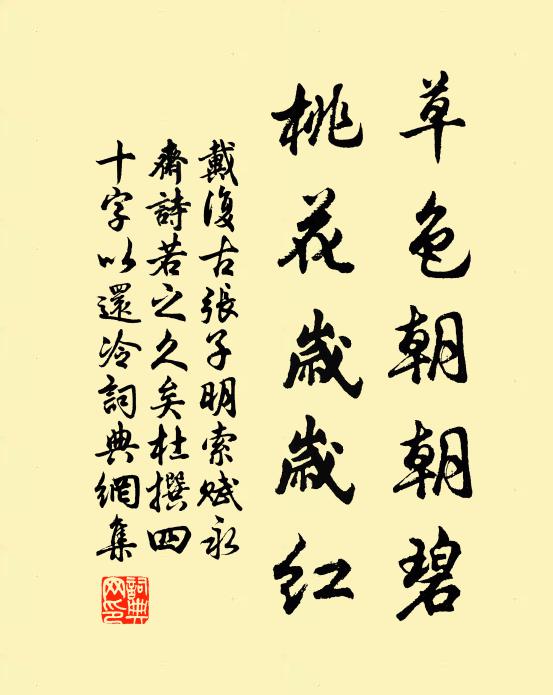 草色朝朝碧
桃花歲歲紅
戴復古張子明索賦永
齋詩若之久矣杜撰四
十字以還冷詞典網集
詞典
网印